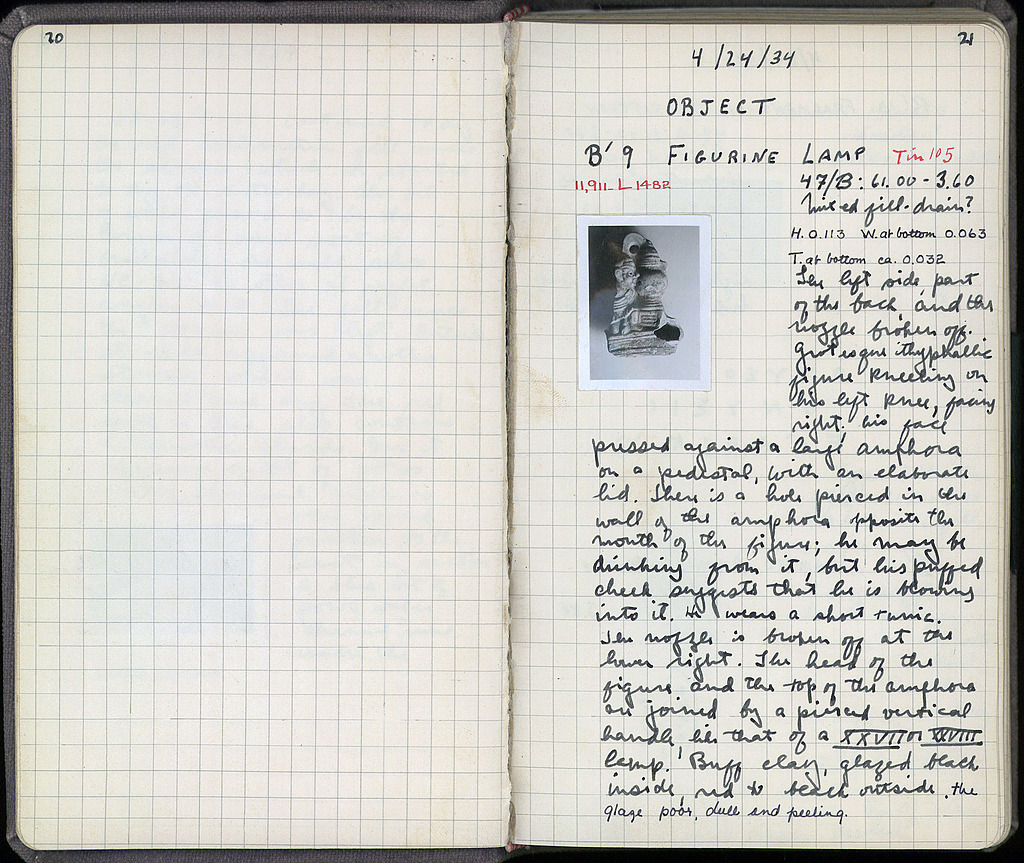 20
21
4/24/34
OBJECT
B' 9 FIGURINE LAMP Tin 105
11,911 - L 1482
47/B: 61.00 - 3.60
mixed fill - drain?
H. 0.113 W. at bottom 0.063
T. at bottom ca. 0.032
The left side, part
of the back, and the
nozzle broken off.
Grotesque ithyphallic
figure kneeling on
his left knee, facing
right, his face
pressed against a large amphora
on a pedestal, with an elaborate
lid. There is a hole pierced in the
wall of the amphora opposite the
mouth of the figure; he may be
drinking from it, but his puffed
cheek suggests that he is blowing
into it. He wears a short tunic.
The nozzle is broken off at the
lower right. The head of the
figure and the top of the amphora
are joined by a pierced vertical
handle, like that of a XXVII or XXVIII
lamp. Buff clay, glazed black
inside, red to black outside, the
glaze poor, dull and peeling.